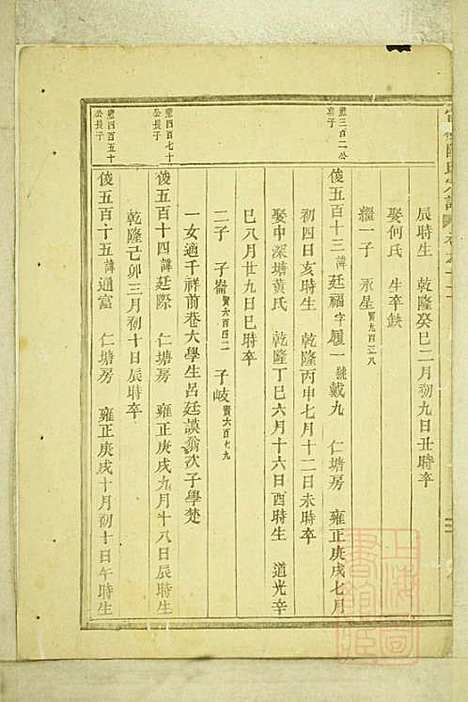 辰時生 乾隆癸巳二月初九日丑時卒
娶何氏 生卒缺
繼一子 承星賢九百三八
應三百二公
俊五百十三諱廷福字履一號戴九 仁塘房 雍正庚戌七月
初四日亥時生 乾隆丙申七月十二日未時卒
娶中深塘黃氏 乾隆丁巳六月十六日酉時生 道光辛
巳八月廿九日巳時卒
二子 子崙賢六百四二 子岐賢六百七九
一女適千祥前巷大學生呂廷謨翁次子學楚
應四百七十
公長子
俊五百十四諱廷際 仁塘房 雍正庚戌九月十八日辰時生
乾隆己卯三月初十日辰時卒
應四百五十
公長子
俊五百十五諱通富 仁塘房 雍正庚戌十月初十日午時生
上海圖書館藏